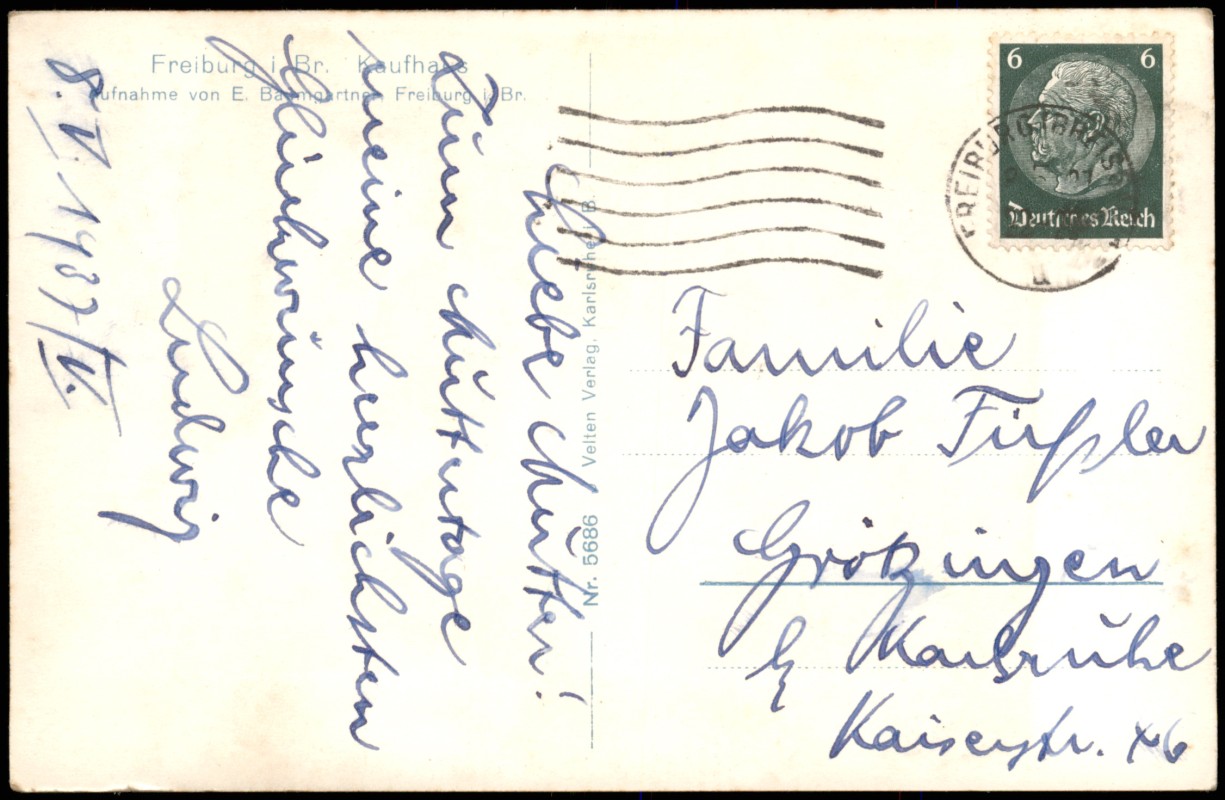 Freiburg i. Br. Kaufhaus
Aufnahme von E. Baumgartner, Freiburg i. Br.
Liebe Mutter!
Zum Muttertage
meine herzlichsten
Glückwünsche
Ludwig
8. V. 1937/V.
Nr. 5686 Velten Verlag, Karlsruhe i. B.
6 6
Deutsches Reich
FREIBURG (BREISGAU)
u
Familie
Jakob Füßler
Grötzingen
b/ Karlsruhe
Kaiserstr. 46